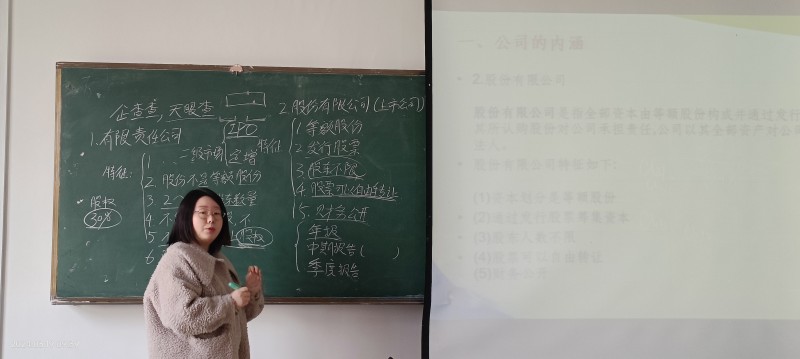 企查查,天眼查
1.有限责任公司
IPO
二级市场 定增
特征:
1
2.股份不是等额股份
3.2
数量
4.不
5.不
股权
6
股权
30%
2.股份有限公司(上市公司)
特征
1.等额股份
2.发行股票
3.股东不限
4.股票可以自由转让
5.财务公开
年报
中期报告( )
季度报告
一、公司的内涵
2.股份有限公司
股份有限公司是指全部资本由等额股份构成并通过发行
其所认购股份对公司承担责任,公司以其全部资产对公司
股份有限公司特征如下:
(1)资本划分为等额股份
(2)通过发行股票筹集资本
(3)股东人数不限
(4)股票可以自由转让
(5)财务公开